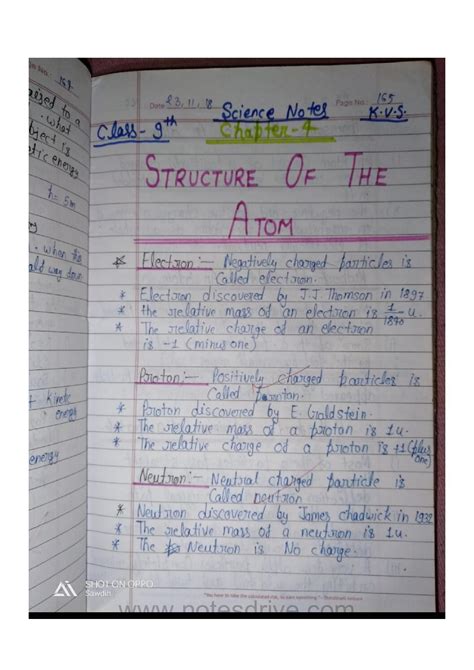 Page No. 164
Date 23, 11, 18
Page No.: 165
Science Notes
K.V.S.
Class- 9th
Chapter-4
STRUCTURE OF THE
ATOM
* Electron:- Negatively charged particles is
Called electron.
* Electron discovered by J.J Thomson in 1897
* the relative mass of an electron is 1/1840 u.
* The relative charge of an electron
is -1 (minus one)
Proton:- Positively charged particles is
Called Proton.
* Proton discovered by E. Goldstein.
* The relative mass of a proton is 1u.
* The relative charge of a proton is +1 (plus
one)
Neutron:- Neutral charged particle is
Called neutron
* Neutron discovered by James chadwick in 1932
* The relative mass of a neutron is 1u.
* The Neutron is No charge.
to a
what
object is
energy
h = 5m
when the
way
Kinetic
energy
energy
SHOT ON OPPO
www.notesdrive.com